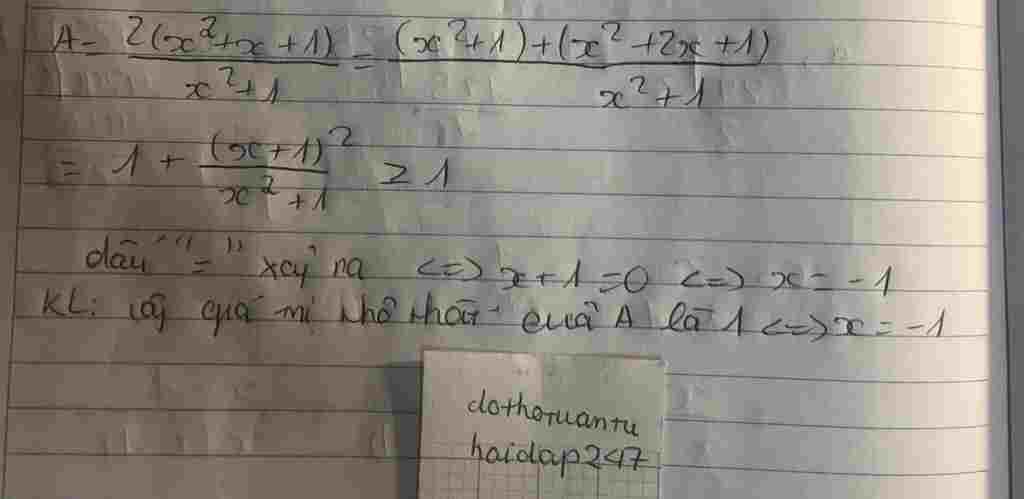 A = 2(x²+x+1) / x²+1 = (x²+1)+(x²+2x+1) / x²+1
= 1 + (x+1)² / x²+1 ≥ 1
dấu "=" xảy ra <=> x+1=0 <=> x=-1
KL: vậy giá trị nhỏ nhất của A là 1 <=> x=-1
dothotuantu
hoidap247